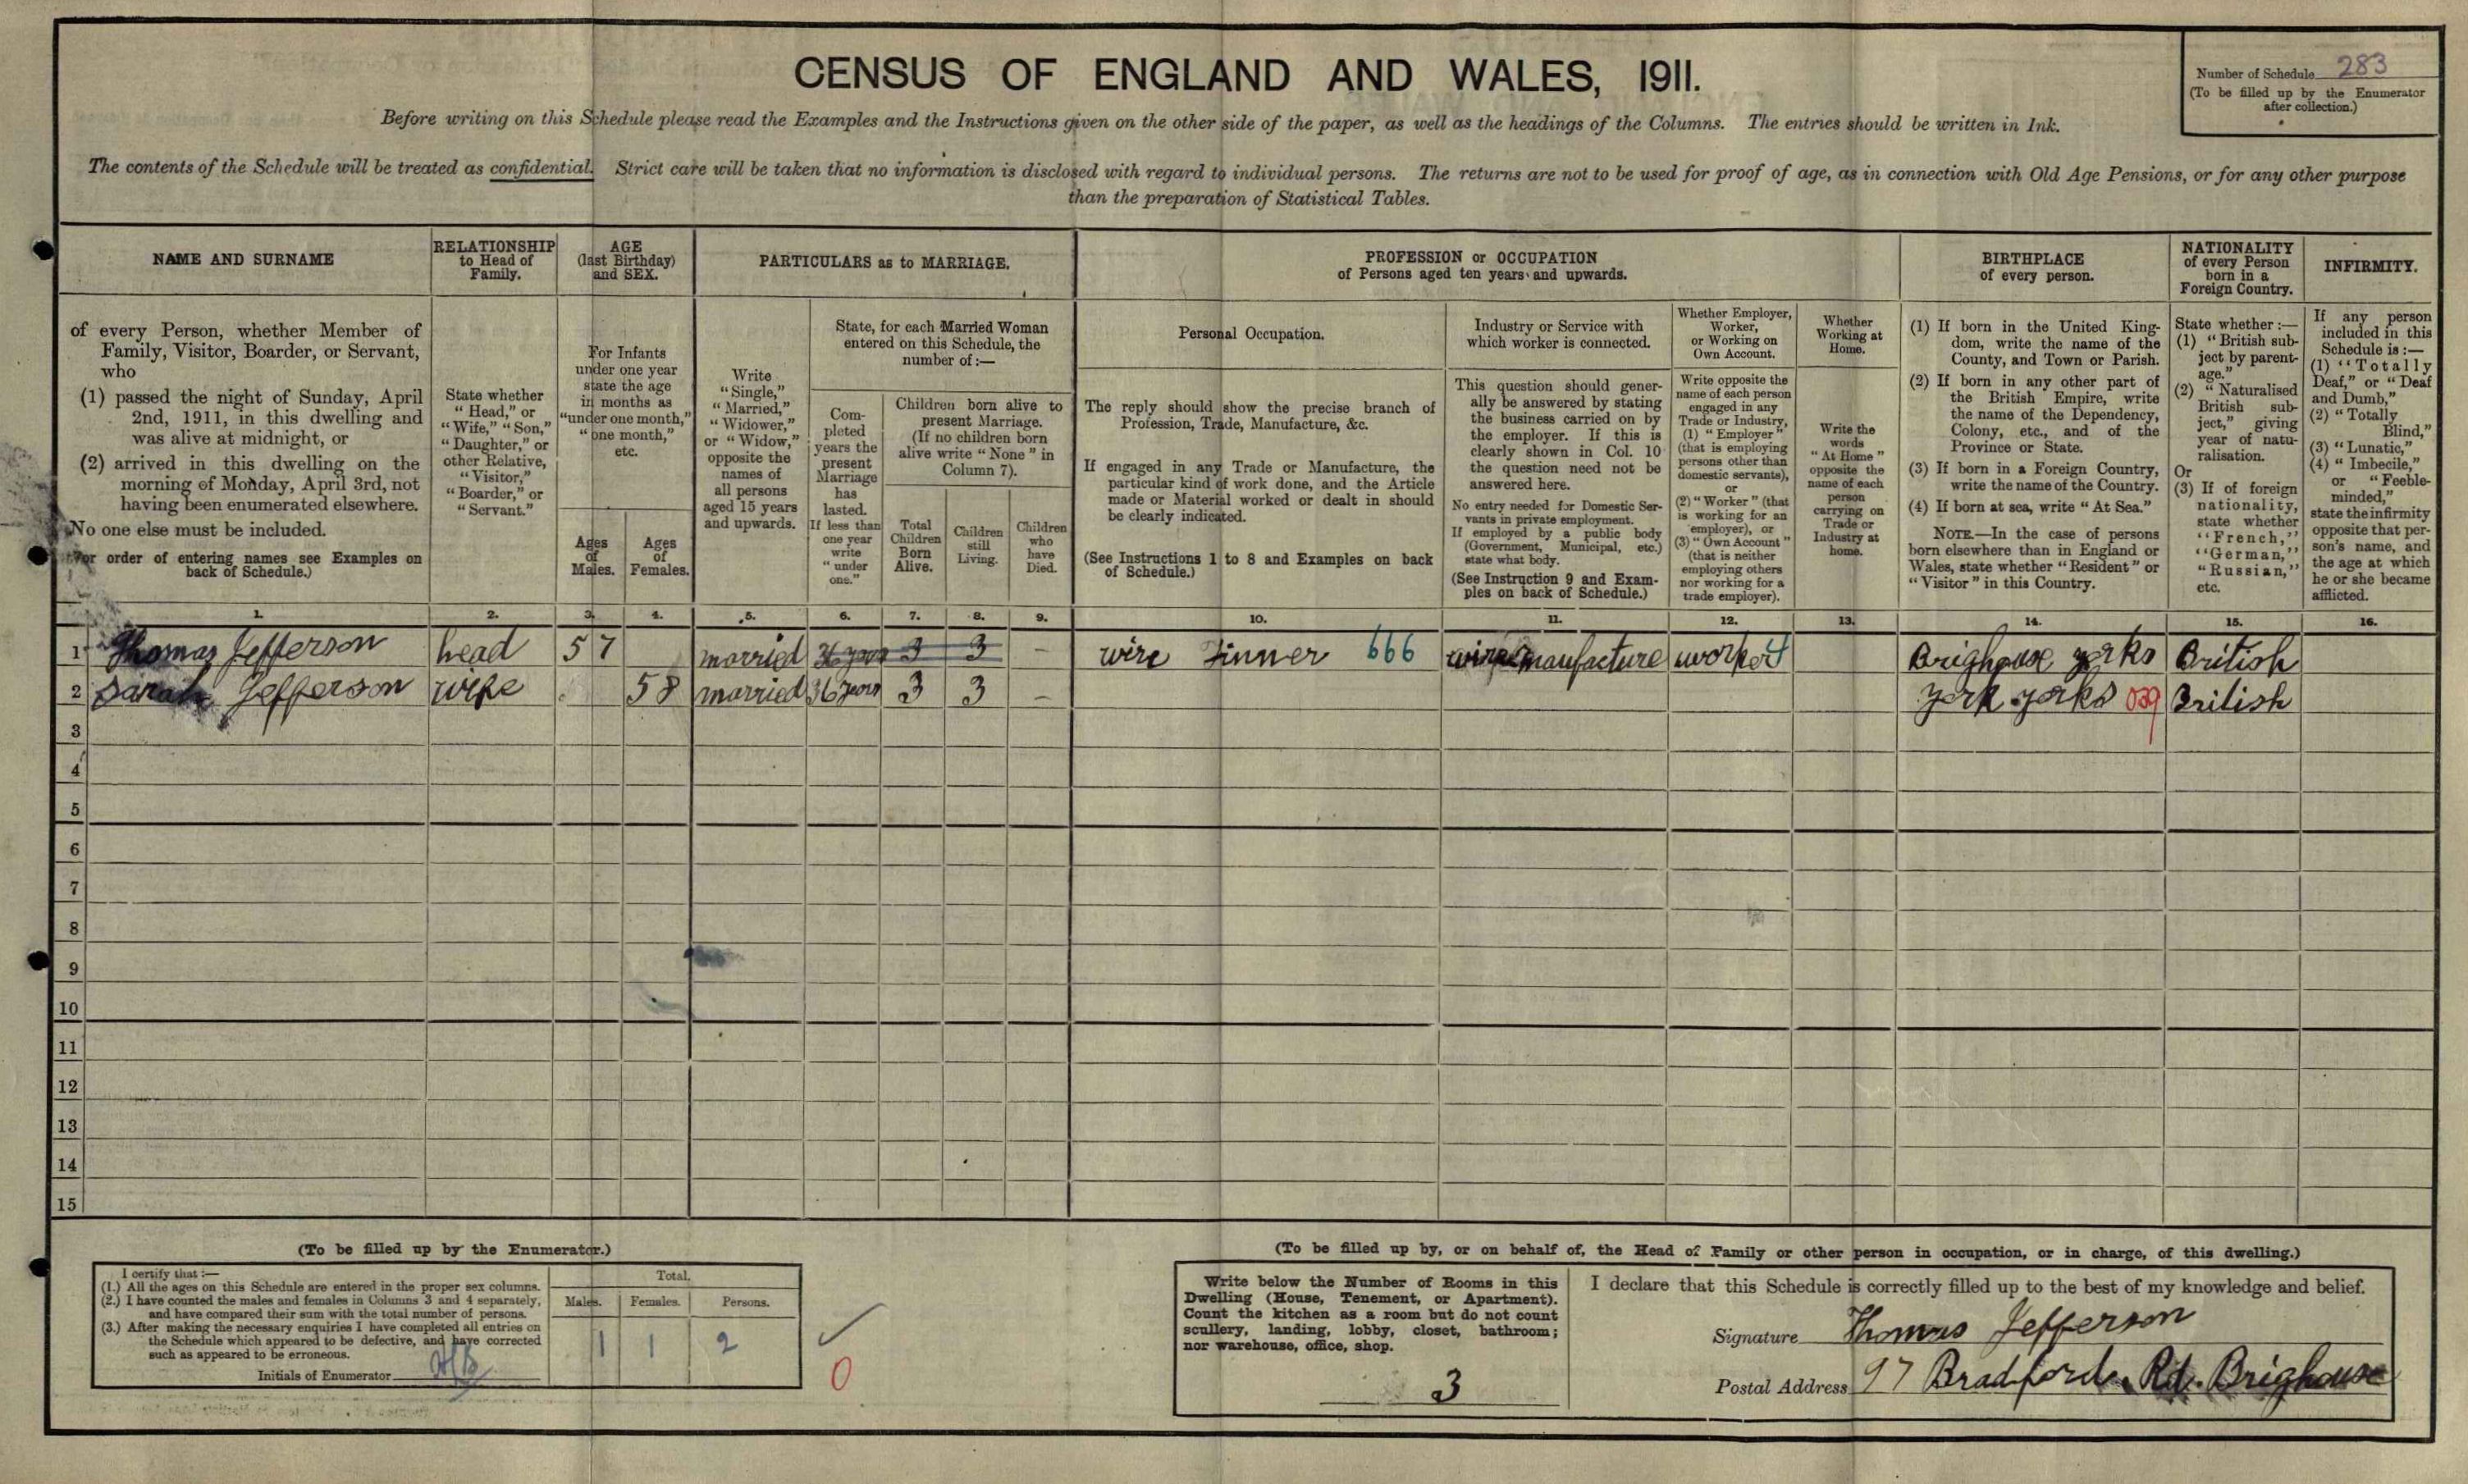 CENSUS OF ENGLAND AND WALES, 1911.
Number of Schedule 283
(To be filled up by the Enumerator
after collection.)
Before writing on this Schedule please read the Examples and the Instructions given on the other side of the paper, as well as the headings of the Columns. The entries should be written in Ink.
The contents of the Schedule will be treated as confidential. Strict care will be taken that no information is disclosed with regard to individual persons. The returns are not to be used for proof of age, as in connection with Old Age Pensions, or for any other purpose
than the preparation of Statistical Tables.
NAME AND SURNAME
RELATIONSHIP
to Head of
Family.
AGE
(last Birthday)
and SEX.
PARTICULARS as to MARRIAGE.
PROFESSION or OCCUPATION
of Persons aged ten years and upwards.
BIRTHPLACE
of every person.
NATIONALITY
of every Person
born in a
Foreign Country.
INFIRMITY.
of every Person, whether Member of
Family, Visitor, Boarder, or Servant,
who
(1) passed the night of Sunday, April
2nd, 1911, in this dwelling and
was alive at midnight, or
(2) arrived in this dwelling on the
morning of Monday, April 3rd, not
having been enumerated elsewhere.
No one else must be included.
(For order of entering names see Examples on
back of Schedule.)
State whether
"Head," or
"Wife," "Son,"
"Daughter," or
other Relative,
"Visitor,"
"Boarder," or
"Servant."
For Infants
under one year
state the age
in months as
"under one month,"
"one month,"
etc.
Ages
of
Males.
Ages
of
Females.
Write
"Single,"
"Married,"
"Widower,"
or "Widow,"
opposite the
names of
all persons
aged 15 years
and upwards.
State, for each Married Woman
entered on this Schedule, the
number of :—
Com-
pleted
years the
present
Marriage
has
lasted.
If less than
one year
write
"under
one."
Children born alive to
present Marriage.
(If no children born
alive write "None" in
Column 7).
Total
Children
Born
Alive.
Children
still
Living.
Children
who
have
Died.
Personal Occupation.
The reply should show the precise branch of
Profession, Trade, Manufacture, &c.
If engaged in any Trade or Manufacture, the
particular kind of work done, and the Article
made or Material worked or dealt in should
be clearly indicated.
(See Instructions 1 to 8 and Examples on back
of Schedule.)
Industry or Service with
which worker is connected.
This question should gener-
ally be answered by stating
the business carried on by
the employer. If this is
clearly shown in Col. 10
the question need not be
answered here.
No entry needed for Domestic Ser-
vants in private employment.
If employed by a public body
(Government, Municipal, etc.)
state what body.
(See Instruction 9 and Exam-
ples on back of Schedule.)
Whether Employer,
Worker,
or Working on
Own Account.
Write opposite the
name of each person
engaged in any
Trade or Industry,
(1) "Employer"
(that is employing
persons other than
domestic servants),
or
(2) "Worker" (that
is working for an
employer), or
(3) "Own Account"
(that is neither
employing others
nor working for a
trade employer).
Whether
Working at
Home.
Write the
words
"At Home"
opposite the
name of each
person
carrying on
Trade or
Industry at
home.
(1) If born in the United King-
dom, write the name of the
County, and Town or Parish.
(2) If born in any other part of
the British Empire, write
the name of the Dependency,
Colony, etc., and of the
Province or State.
(3) If born in a Foreign Country,
write the name of the Country.
(4) If born at sea, write "At Sea."
NOTE.—In the case of persons
born elsewhere than in England or
Wales, state whether "Resident" or
"Visitor" in this Country.
State whether :—
(1) "British sub-
ject by parent-
age."
(2) "Naturalised
British sub-
ject," giving
year of natu-
ralisation.
Or
(3) If of foreign
nationality,
state whether
"French,"
"German,"
"Russian,"
etc.
If any person
included in this
Schedule is :—
(1) "Totally
Deaf," or "Deaf
and Dumb,"
(2) "Totally
Blind,"
(3) "Lunatic,"
(4) "Imbecile,"
or "Feeble-
minded,"
state the infirmity
opposite that per-
son's name, and
the age at which
he or she became
afflicted.
1. 2. 3. 4. 5. 6. 7. 8. 9. 10. 11. 12. 13. 14. 15. 16.
1 Thomas Jefferson head 57 married 36 years 3 3 – wire tinner 666 wire manufacture worker Brighouse yorks British
2 Sarah Jefferson wife 58 married 36 years 3 3 – york yorks 039 British
3
4
5
6
7
8
9
10
11
12
13
14
15
(To be filled up by the Enumerator.)
I certify that :—
(1.) All the ages on this Schedule are entered in the proper sex columns.
(2.) I have counted the males and females in Columns 3 and 4 separately,
and have compared their sum with the total number of persons.
(3.) After making the necessary enquiries I have completed all entries on
the Schedule which appeared to be defective, and have corrected
such as appeared to be erroneous.
Initials of Enumerator
Total.
Males. Females. Persons.
1 1 2
0
(To be filled up by, or on behalf of, the Head of Family or other person in occupation, or in charge, of this dwelling.)
Write below the Number of Rooms in this
Dwelling (House, Tenement, or Apartment).
Count the kitchen as a room but do not count
scullery, landing, lobby, closet, bathroom;
nor warehouse, office, shop.
3
I declare that this Schedule is correctly filled up to the best of my knowledge and belief.
Signature Thomas Jefferson
Postal Address 97 Bradford Rd. Brighouse